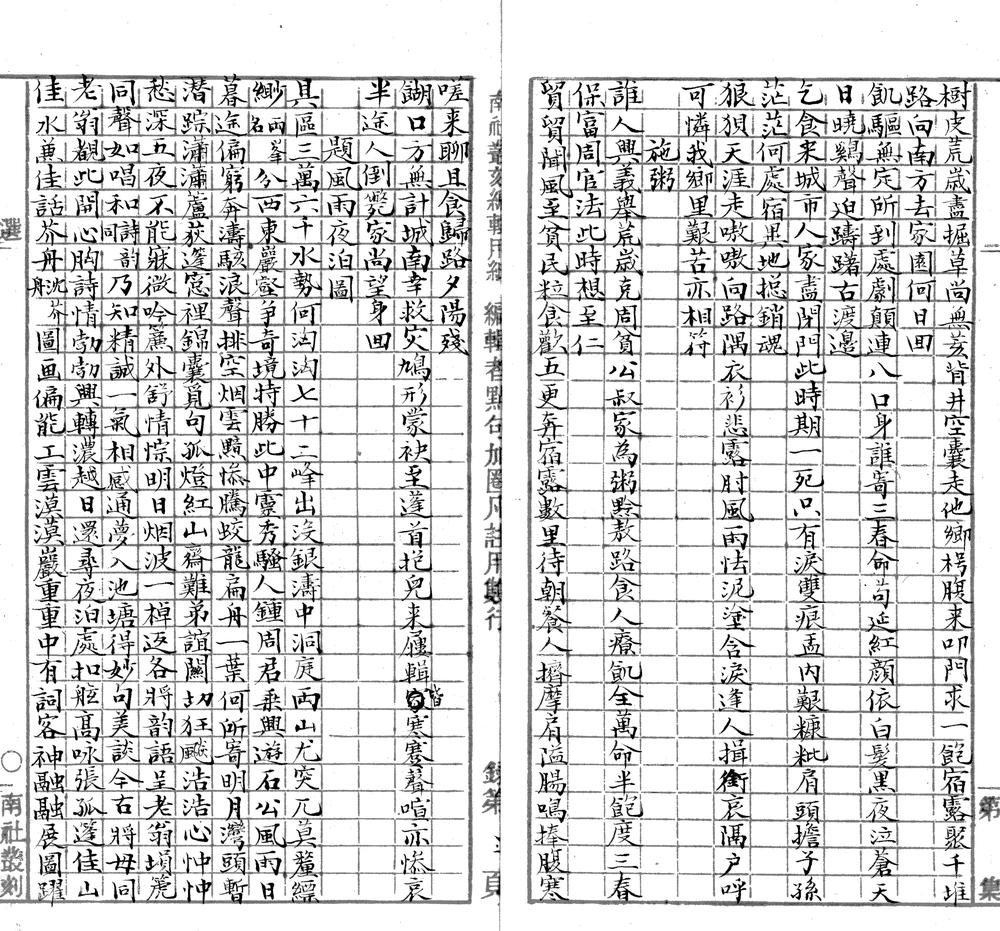 樹皮荒歲盡掘草尚無芰眢井空囊走他鄉枵腹来叩門求一飽宿露聚千堆
路向南方去家園何日回
飢驅無定所到處劇顛連八口身誰寄三春命苟延紅顔依白髮黒夜泣蒼天
日曉鷄聲迫躊躇古渡邊
乞食来城市人家盡閉門此時期一死只有淚雙痕盂内艱糠粃肩頭擔子孫
茫茫何處宿黒地摠銷魂
狼狽天涯走嗷嗷向路隅衣衫悲露肘風雨怯泥塗含淚逢人揖銜哀隔户呼
可憐我鄉里艱苦亦相符
施粥
誰人興義舉荒歲克周貧公叔家為粥黔敖路食人療飢全萬命半飽度三春
保富周官法此時想至仁
貿貿聞風至貧民粒食歡五更奔宿露數里待朝餐人擠摩肩隘腸鳴捧腹寒
嗟来聊且食歸路夕陽殘
餬口方無計城南幸救灾鳩形蒙袂至蓬首抱兒来屨輯皆寒蹇聲喧亦惨哀
半途人倒斃家尚望身回
題風雨夜泊圖
具區三萬六千水勢何洶洶七十二峰出沒銀濤中洞庭両山尤突兀莫釐縹
緲両峯名分西東巖壑爭奇境特勝此中靈秀騷人鍾周君乗興遊石公風雨日
暮途偏窮奔濤駭浪聲排空烟雲黯惨騰蛟龍扁舟一葉何所寄明月灣頭暫
潜踪瀟瀟蘆荻逢窓裡錦囊覓句孤燈紅山齋難弟誼關切狂飈浩浩心忡忡
愁深五夜不能寐微吟簾外舒情悰明日烟波一棹返各將韵語呈老翁塤箎
同聲如唱和詩韵同乃知精誠一氣相感通夢入池塘得妙句美談今古將毋同
老翁覩此開心胸詩情勃勃興轉濃越日還尋夜泊處扣舷髙咏張孤蓬佳山
佳水兼佳話芥舟沈芥舟圖画偏能工雲漠漠巖重重中有詞客神融融展圖躍
二
第 集
南社叢刻編輯用紙 編輯者點句加圈凡註用雙行
錄第 頁
選
〇南社叢刻